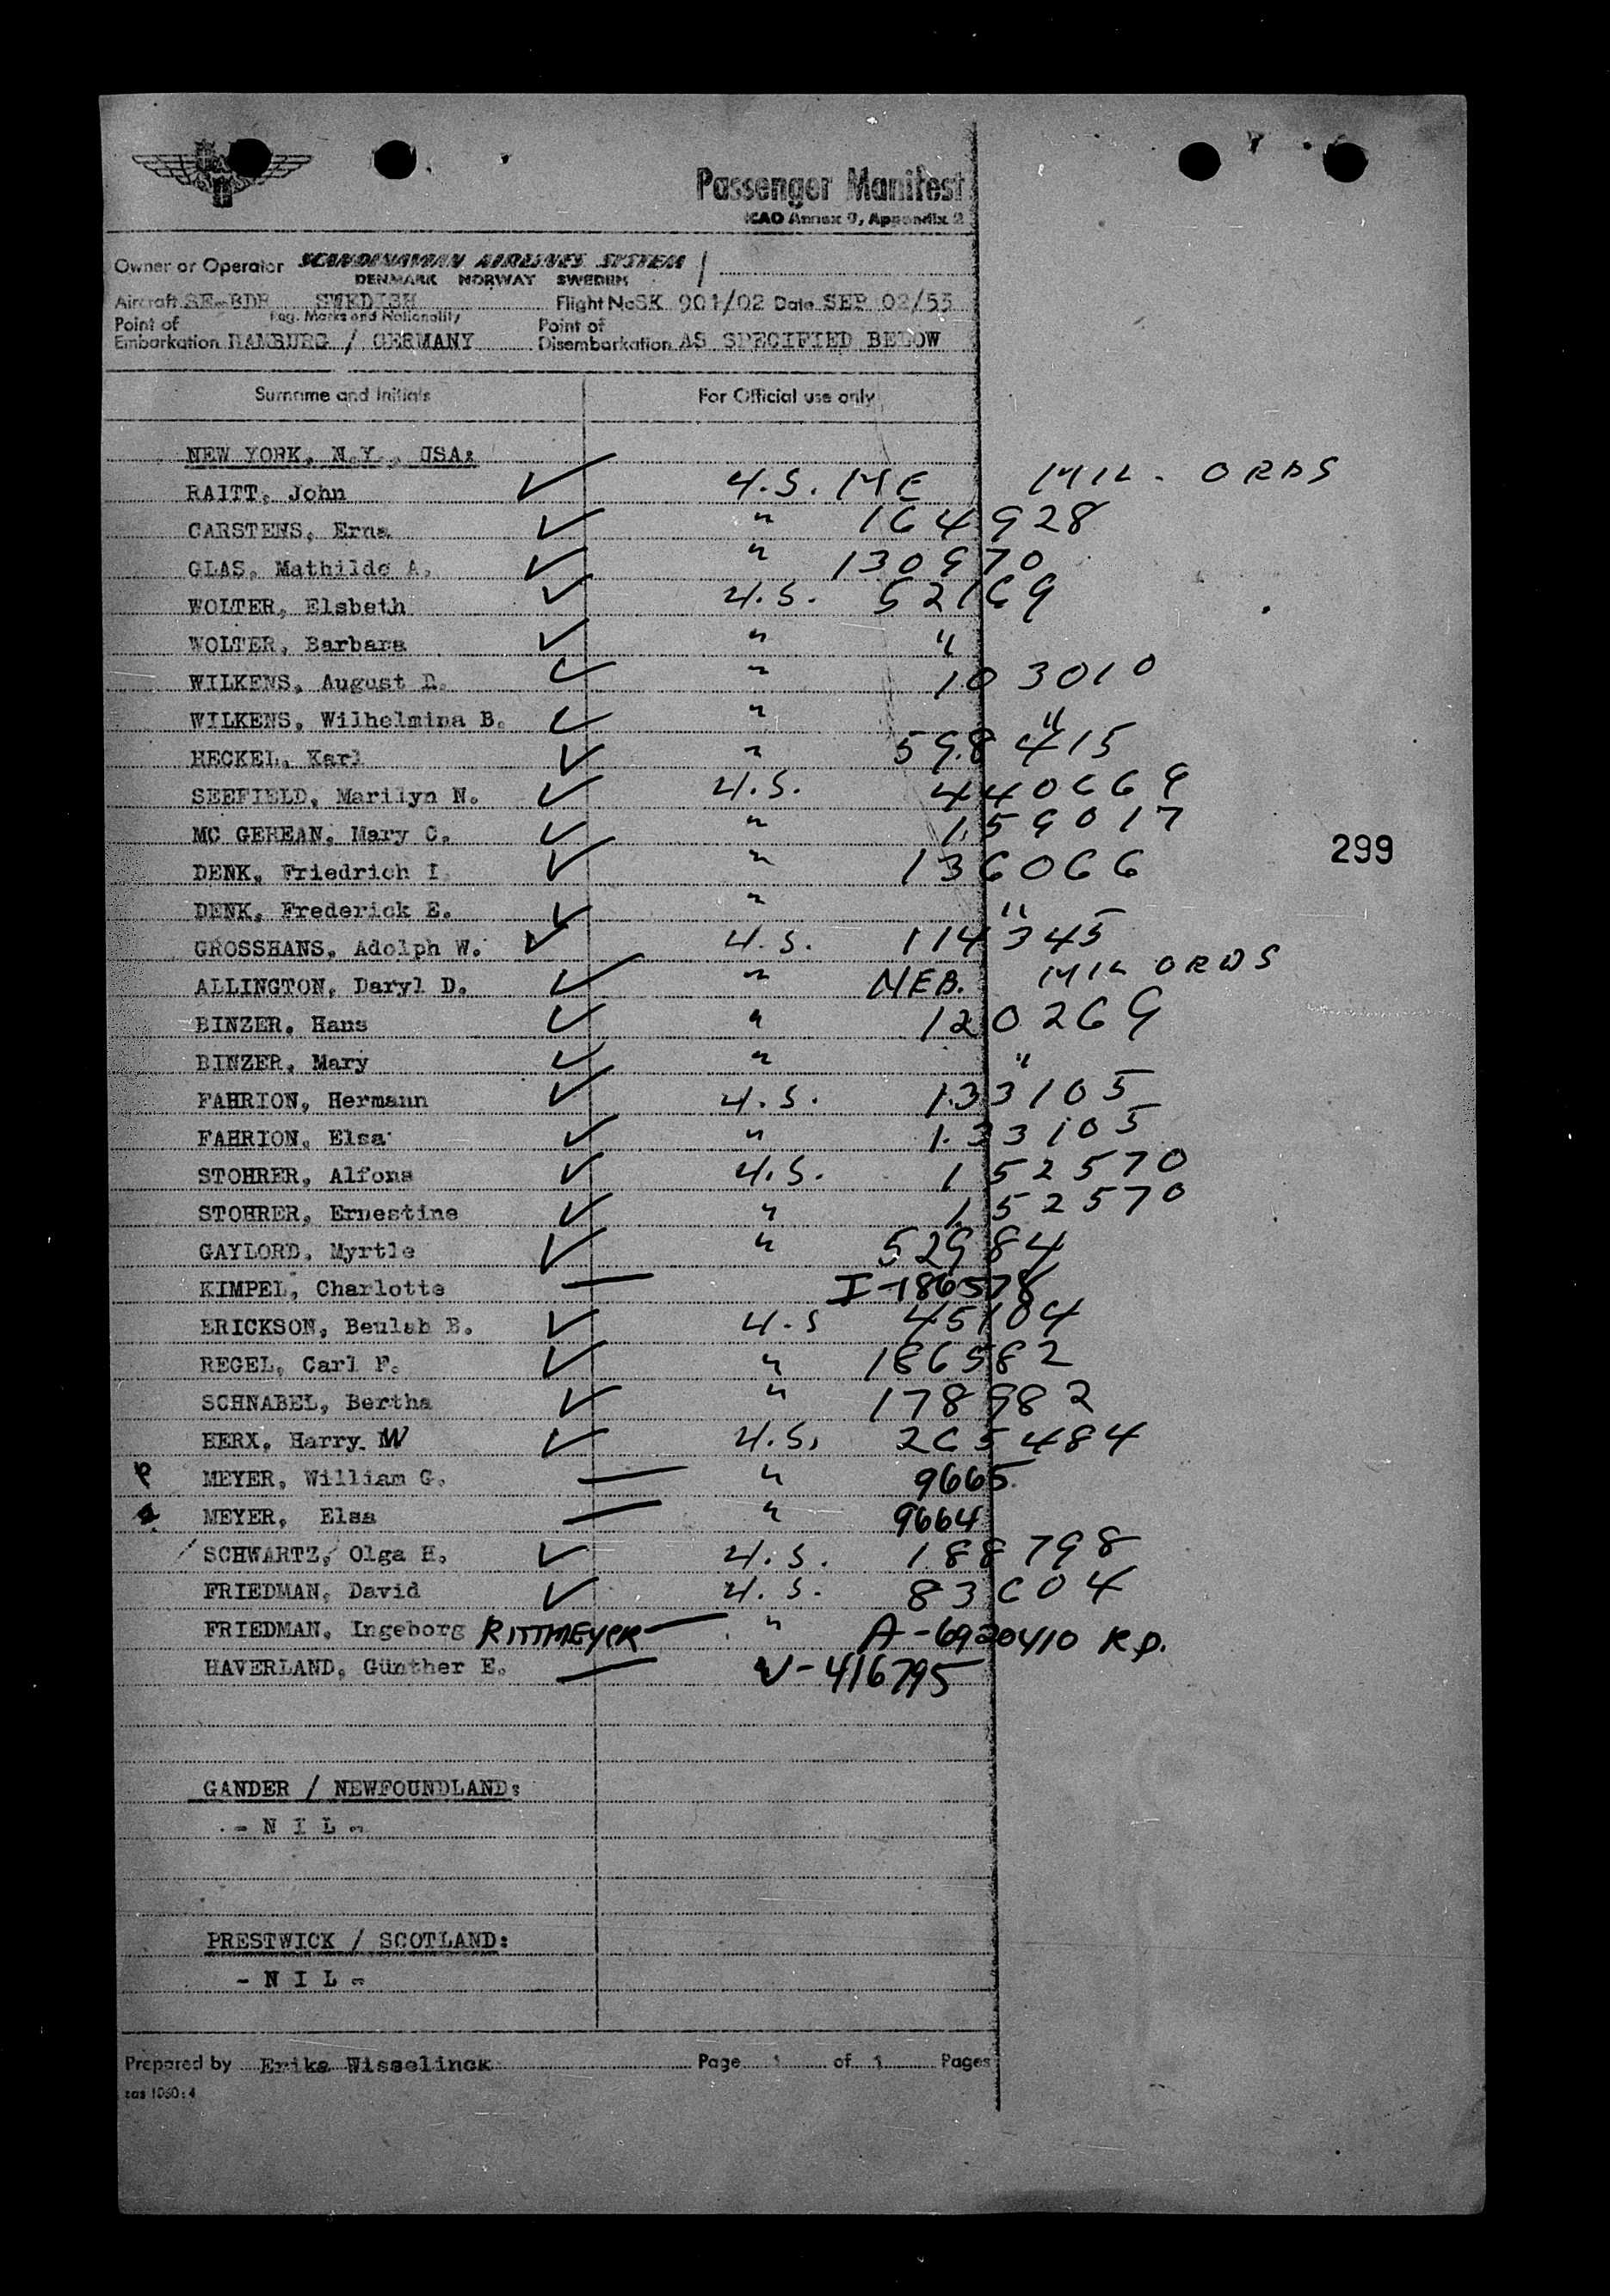 Passenger Manifest
ICAO Annex 9, Appendix 2
Owner or Operator SCANDINAVIAN AIRLINES SYSTEM
DENMARK NORWAY SWEDEN
Aircraft SE-BDR SWEDISH Flight No SK 901/02 Date SEP 02/55
Reg. Marks and Nationality
Point of Embarkation HAMBURG / GERMANY Point of Disembarkation AS SPECIFIED BELOW
Surname and Initials For Official use only
NEW YORK, N.Y., USA:
RAITT, John ✓ U.S. ME MIL. ORDS
CARSTENS, Erna ✓ " 164928
GLAS, Mathilde A. ✓ " 130970
WOLTER, Elsbeth ✓ U.S. 52169
WOLTER, Barbara ✓ " "
WILKENS, August D. ✓ " 103010
WILKENS, Wilhelmina B. ✓ " "
HECKEL, Karl ✓ " 598415
SEEFIELD, Marilyn N. ✓ U.S. 440669
MC GEHEAN, Mary C. ✓ " 159017
DENK, Friedrich I. ✓ " 136066
DENK, Frederick E. ✓ " "
GROSSHANS, Adolph W. ✓ U.S. 114345
ALLINGTON, Daryl D. ✓ " NEB. MIL ORDS
BINZER, Hans ✓ " 120269
BINZER, Mary ✓ " "
FAHRION, Hermann ✓ U.S. 133105
FAHRION, Elsa ✓ " 133105
STOHRER, Alfons ✓ U.S. 152570
STOHRER, Ernestine ✓ " 152570
GAYLORD, Myrtle ✓ " 52984
KIMPEL, Charlotte — I-186578
ERICKSON, Beulah B. ✓ U.S 45104
REGEL, Carl F. ✓ " 186582
SCHNABEL, Bertha ✓ " 178982
HERX, Harry W ✓ U.S. 265484
MEYER, William G. — " 9665
MEYER, Elsa — " 9664
SCHWARTZ, Olga H. ✓ U.S. 188798
FRIEDMAN, David ✓ U.S. 83604
FRIEDMAN, Ingeborg RITTMEYER — " A-6920410 R.P.
HAVERLAND, Günther E. — V-416795
GANDER / NEWFOUNDLAND:
- N I L -
PRESTWICK / SCOTLAND:
- N I L -
Prepared by Erika Wisselinck Page 1 of 1 Pages
sas 1060:4
299